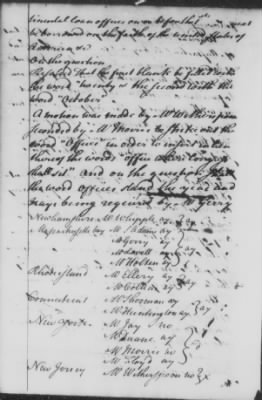 tinental loan offices on or before that
be borrowed on the faith of the united states of
America &c
On the question
Resolved That the first blank be filled with
the word "twenty" & the second with the
word "October"
A motion was made by Mr Witherspoon
seconded by Mr Morris to strike out the
word "offices" in order to insert in
thereof the words "office where Congress
shall sit" and on the question that
the word offices stand the yeas and
nays being required by Mr Gerry
Newhampshire Mr Whipple ay
Massachusetts bay Mr S Adams ay
Mr Gerry ay
Mr Lovell ay
Mr Holten ay
Rhodeisland Mr Ellery ay
Mr Collins ay
Connecticut Mr Sherman ay
Mr Huntington ay } ay
New York Mr Jay no
Mr Duane ay
Mr Morris no
Mr Floyd ay
New Jersey Mr Witherspoon no